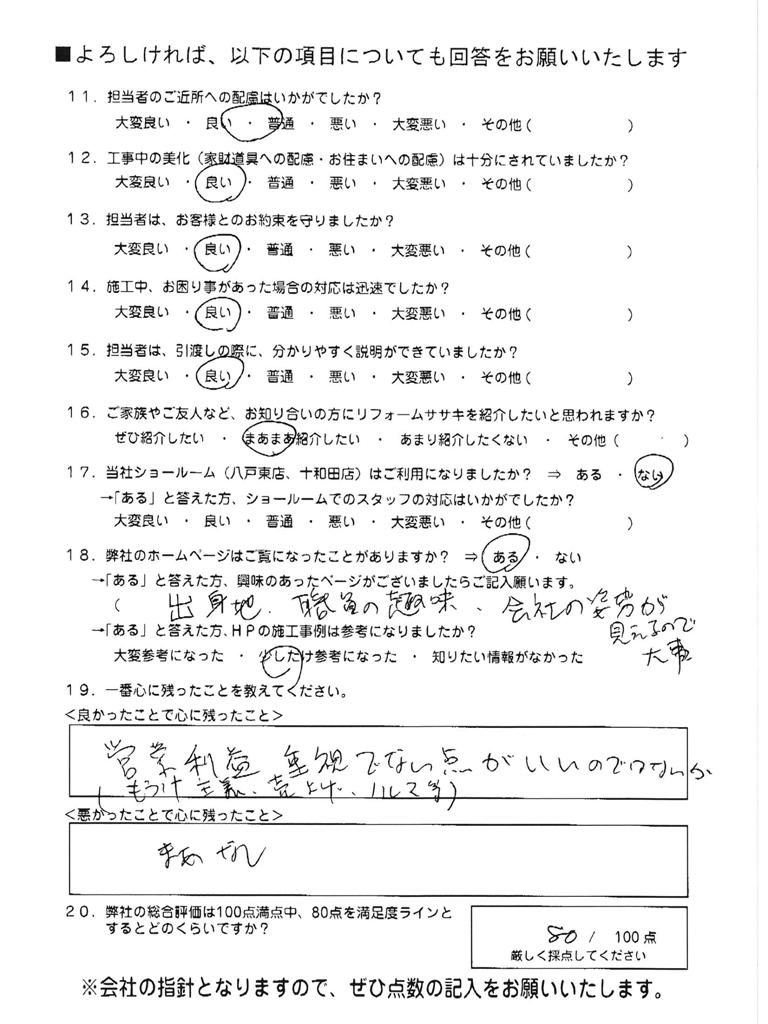 ■よろしければ、以下の項目についても回答をお願いいたします
11．担当者のご近所への配慮はいかがでしたか？
大変良い ・ 良い ・ 普通 ・ 悪い ・ 大変悪い ・ その他（ ）
12．工事中の美化（家財道具への配慮・お住まいへの配慮）は十分にされていましたか？
大変良い ・ 良い ・ 普通 ・ 悪い ・ 大変悪い ・ その他（ ）
13．担当者は、お客様とのお約束を守りましたか？
大変良い ・ 良い ・ 普通 ・ 悪い ・ 大変悪い ・ その他（ ）
14．施工中、お困り事があった場合の対応は迅速でしたか？
大変良い ・ 良い ・ 普通 ・ 悪い ・ 大変悪い ・ その他（ ）
15．担当者は、引渡しの際に、分かりやすく説明ができていましたか？
大変良い ・ 良い ・ 普通 ・ 悪い ・ 大変悪い ・ その他（ ）
16．ご家族やご友人など、お知り合いの方にリフォームササキを紹介したいと思われますか？
ぜひ紹介したい ・ まあまあ紹介したい ・ あまり紹介したくない ・ その他（ ）
17．当社ショールーム（八戸東店、十和田店）はご利用になりましたか？ ⇒ ある ・ ない
→「ある」と答えた方、ショールームでのスタッフの対応はいかがでしたか？
大変良い ・ 良い ・ 普通 ・ 悪い ・ 大変悪い ・ その他（ ）
18．弊社のホームページはご覧になったことがありますか？ ⇒ ある ・ ない
→「ある」と答えた方、興味のあったページがございましたらご記入願います。
（ 出身地、職員の趣味、会社の姿勢が
見えるので
大事
→「ある」と答えた方、HPの施工事例は参考になりましたか？
大変参考になった ・ 少しだけ参考になった ・ 知りたい情報がなかった
19．一番心に残ったことを教えてください。
＜良かったことで心に残ったこと＞
営業利益重視でない点がいいのではないか
（もうけ主義、売上げ、ノルマ等）
＜悪かったことで心に残ったこと＞
まあなし
20．弊社の総合評価は100点満点中、80点を満足度ラインと
するとどのくらいですか？
80 / 100点
厳しく採点してください
※会社の指針となりますので、ぜひ点数の記入をお願いいたします。